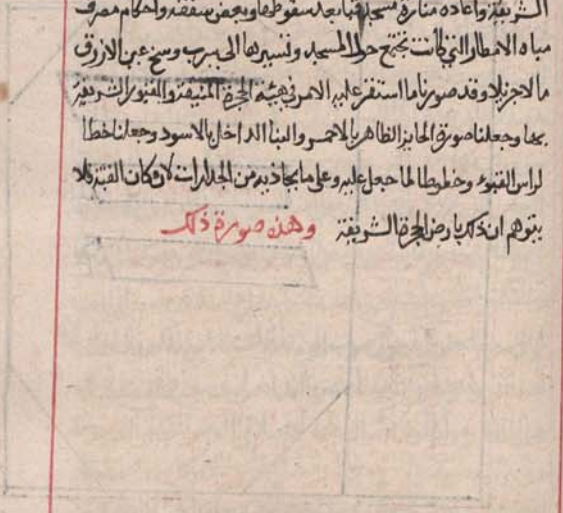 الشريفة واعاده منارة مسجد قبا بعد سقوطها وبعض سقفه واحكام مصرف
مياه الامطار التي كانت تجتمع حول المسجد وتسييرها الى سرب وسخ عين الازرق
مالاجزيلا وقد صورنا ما استقر عليه الامر في هيئة الحجرة المنيفة والقبور الشريفة
بها وجعلنا صورة الحايز الظاهر بالاحمر والبنا الداخل بالاسود وجعلنا خطا
لراس القبو وخطوطا لما جعل عليه وعلى ما يحاذيه من الجدارات لاركان القبة فلا
يتوهم ان ذلك بارض الحجرة الشريفة وهذه صورة ذلك